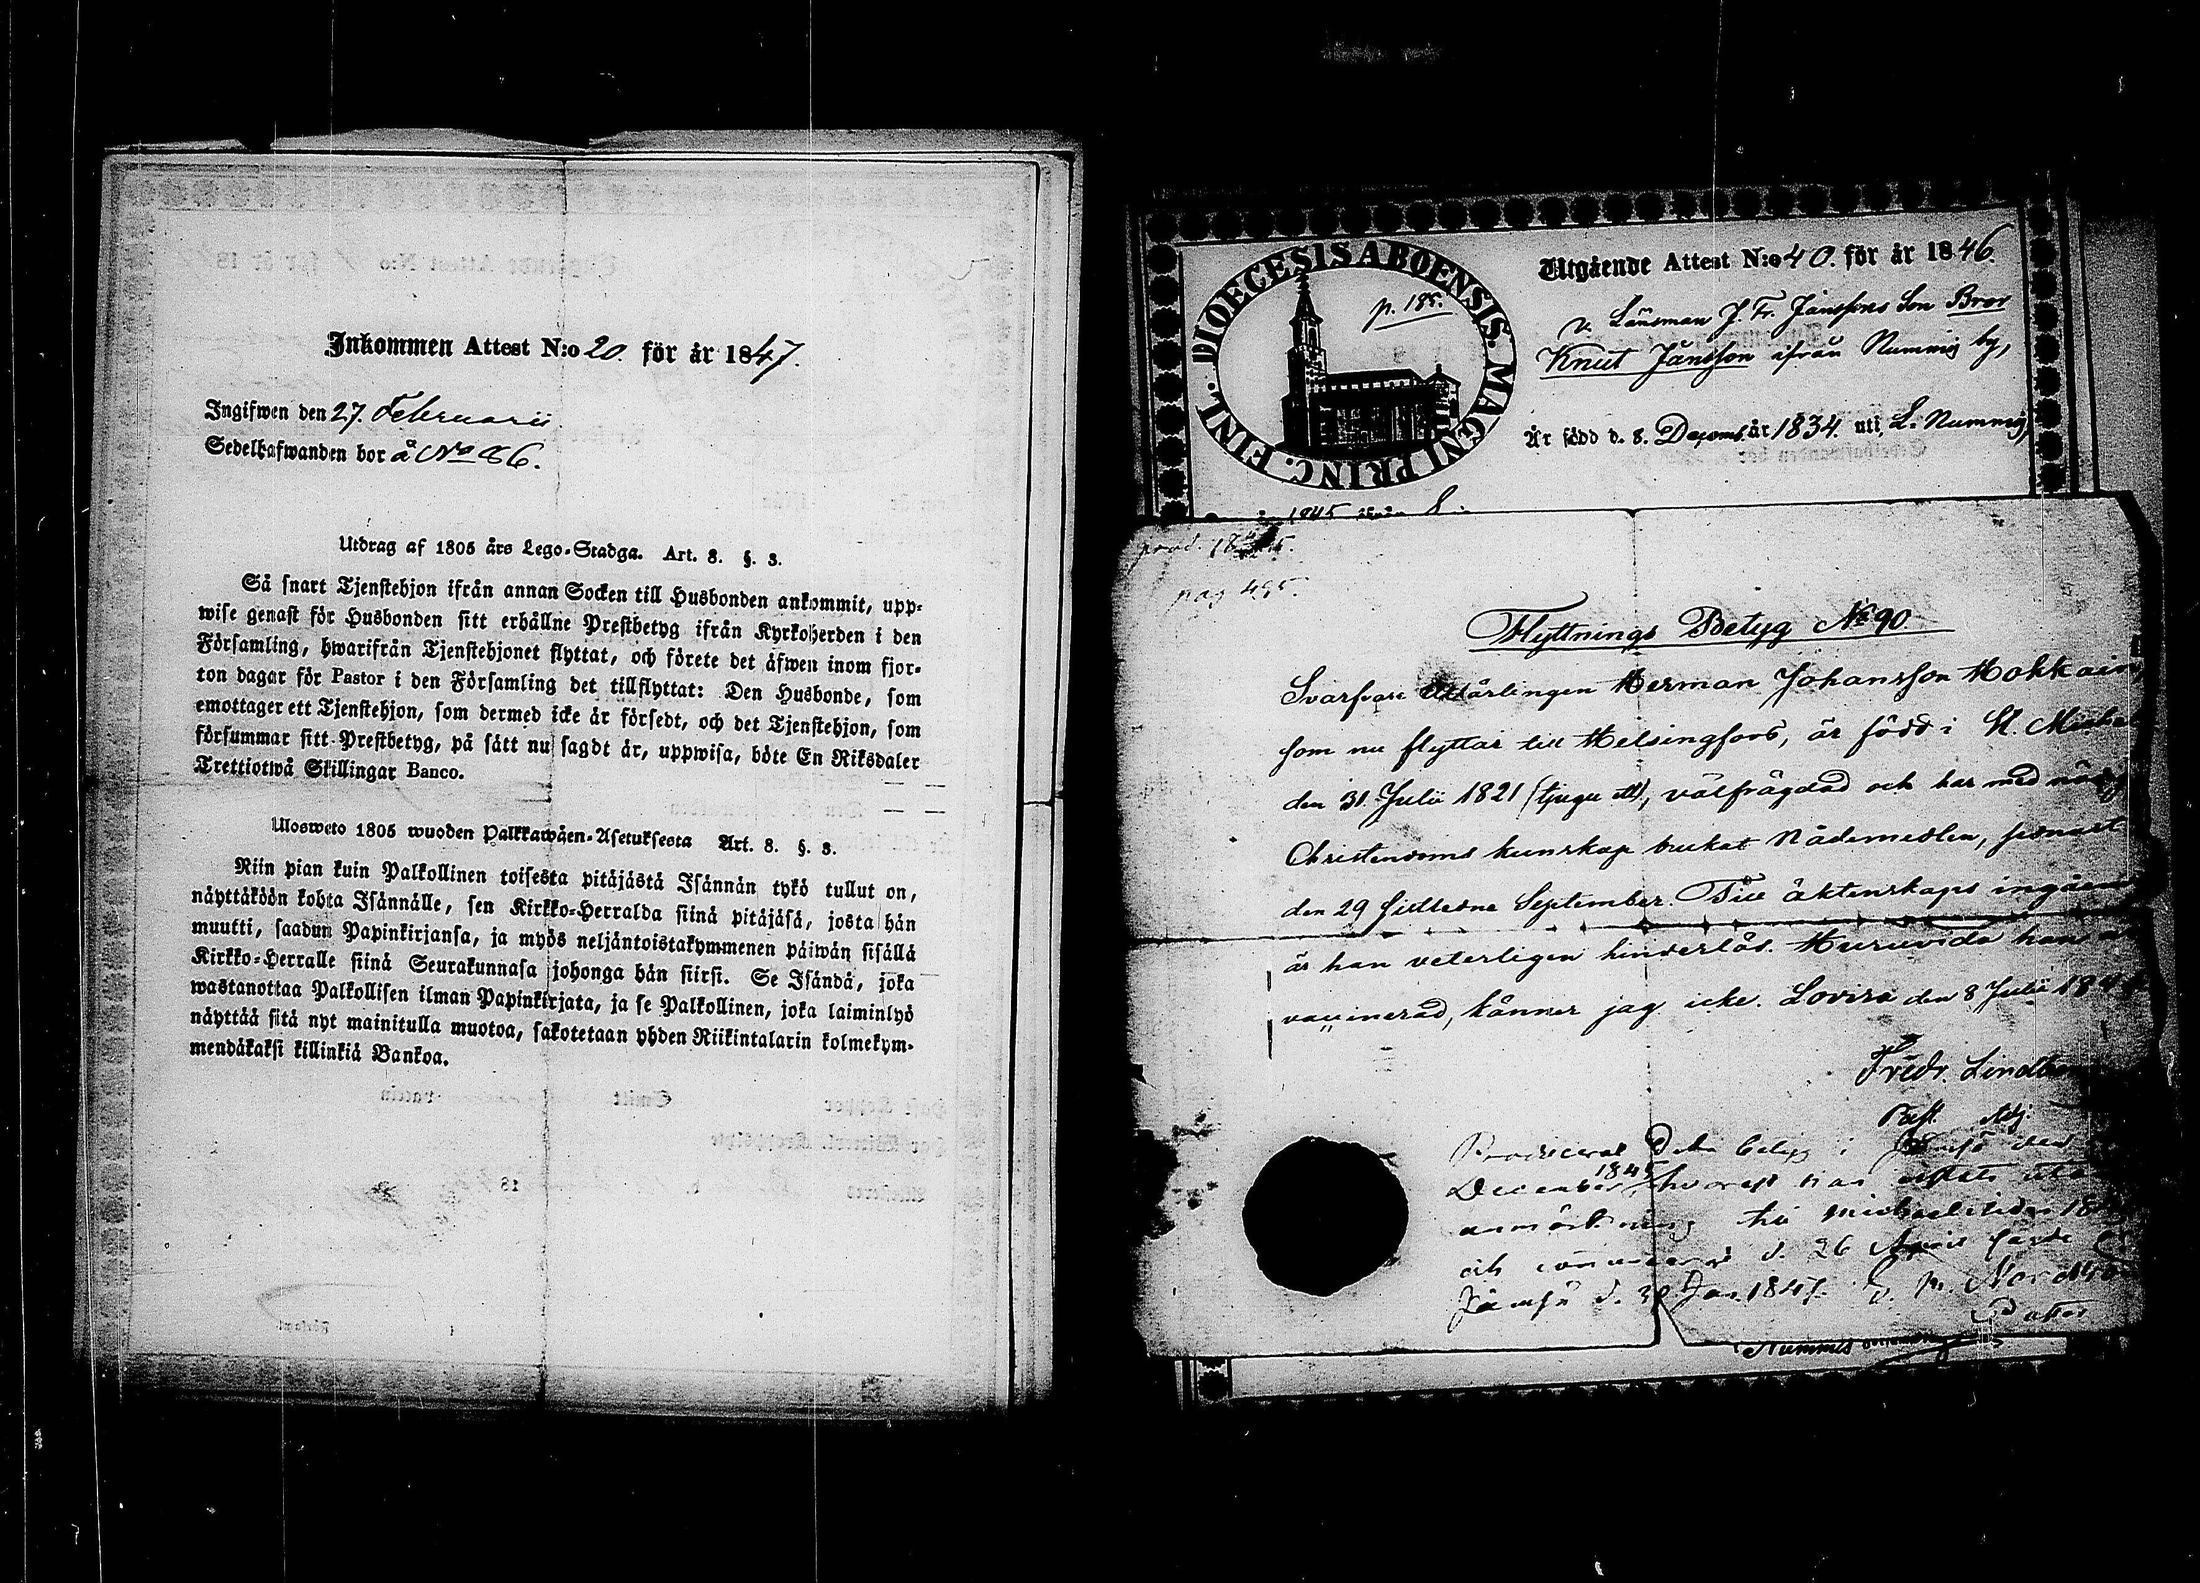 Inkommen Attest N:o 20. för år 1847.
Ingifwen den 27. Februarii
Sedelhafwanden bor å No 86.
Utdrag af 1805 års Lego-Stadga. Art. 8. §. 3.
Så snart Tjenstehjon ifrån annan Socken till Husbonden ankommit, upp-
wise genast för Husbonden sitt erhållne Prestbetyg ifrån Kyrkoherden i den
Församling, hwarifrån Tjenstehjonet flyttat, och förete det äfwen inom fjor-
ton dagar för Pastor i den Församling det tillflyttat: Den Husbonde, som
emottager ett Tjenstehjon, som dermed icke är försedt, och det Tjenstehjon, som
försummar sitt Prestbetyg, på sätt nu sagdt är, uppwisa, böte En Riksdaler
Trettiotwå Skillingar Banco.
Ulosweto 1805 wuoden Palkkawäen-Asetuksesta Art. 8. §. 3.
Niin pian kuin Palkollinen toisesta pitäjästä Isännän tykö tullut on,
näyttäköön kohta Isännälle, sen Kirkko-Herralda siinä pitäjäsä, josta hän
muutti, saadun Papinkirjansa, ja myös neljäntoistakymmenen päiwän sisällä
Kirkko-Herralle siinä Seurakunnasa johonga hän siirsi. Se Isändä, joka
wastanottaa Palkollisen ilman Papinkirjata, ja se Palkollinen, joka laiminlyö
näyttää sitä nyt mainitulla muotoa, sakotetaan yhden Riikintalarin kolmekym-
mendäkaksi killinkiä Bankoa.
FINL. DIOECESIS ABOENSIS. MAGNI PRINC.
p. 185.
Utgående Attest N:o 40. för år 1846.
v. Länsman J. Fr. Jansson Son Bror
Knut Jansson ifrån Nummis by,
Är född d. 8. Decemb. år 1834. uti L. Nummis,
1845 ifrån
prod. 18
pag 495.
Flyttnings Betyg No 90
Svarfvare Lärlingen Herman Johansson Hokkain,
som nu flyttar till Helsingfors, är född i St. Michel
den 31 Julii 1821 (tjugu ett), välfrägdad och har med nöjag
Christendoms kunskap brukat Nådemedlen, senast
den 29 sidstledne September. Till äktenskaps ingående
är han veterligen hinderlös. Huruvida han är
vaccinerad, känner jag icke. Lovisa den 8 Julii 184
Fredr. Lindb
Past. Adj.
Producerat Detta betyg i Jämsö den
December 1845, hvarest han vistats utan
anmärkning till Michaelitiden 18
och communicerat d. 26
Jämsö d. 30 Jan. 1847.
Pastor
Nummis